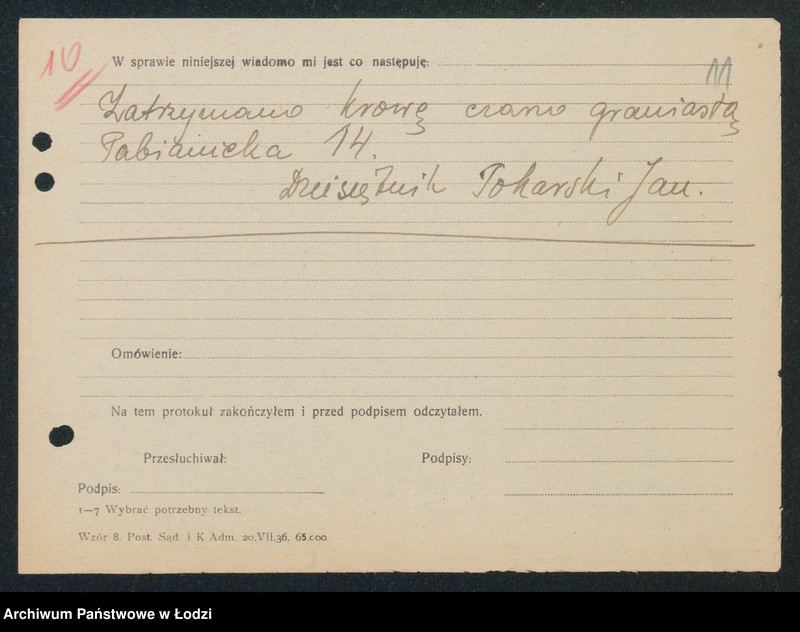 10
11
W sprawie niniejszej wiadomo mi jest co następuję:
Zatrzymano krowę czarno graniastą
Pabianicka 14.
Dziesiętnik Tokarski Jan.
Omówienie:
Na tem protokuł zakończyłem i przed podpisem odczytałem.
Przesłuchiwał: Podpisy:
Podpis:
1—7 Wybrać potrzebny tekst.
Wzór 8. Post. Sąd. i K Adm. 20.VII.36. 65.000.
Archiwum Państwowe w Łodzi